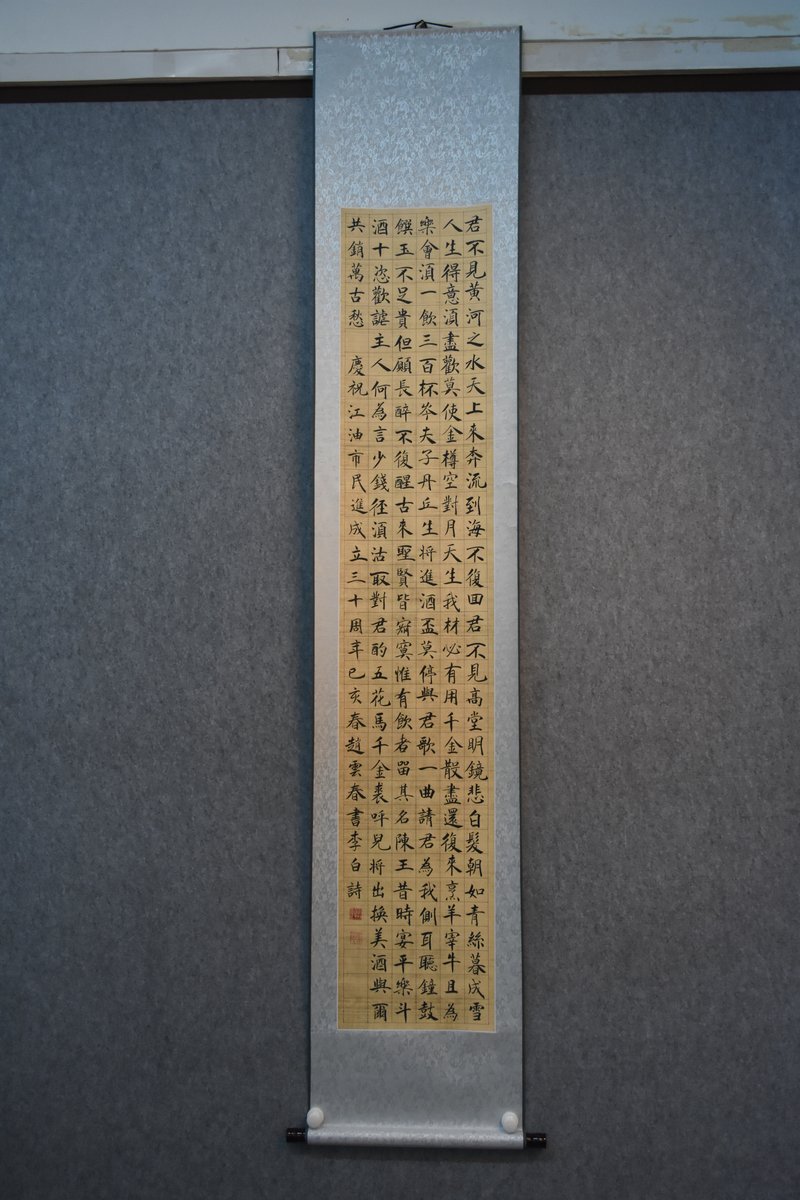 君不見黃河之水天上來奔流到海不復回君不見高堂明鏡悲白髮朝如青絲暮成雪
人生得意須盡歡莫使金樽空對月天生我材必有用千金散盡還復來烹羊宰牛且為
樂會須一飲三百杯岑夫子丹丘生將進酒盃莫停與君歌一曲請君為我側耳聽鐘鼓
饌玉不足貴但願長醉不復醒古來聖賢皆寂寞惟有飲者留其名陳王昔時宴平樂斗
酒十恣歡謔主人何為言少錢徑須沽取對君酌五花馬千金裘呼兒將出換美酒與爾
共銷萬古愁 慶祝江油市民進成立三十周年己亥春趙雲春書李白詩